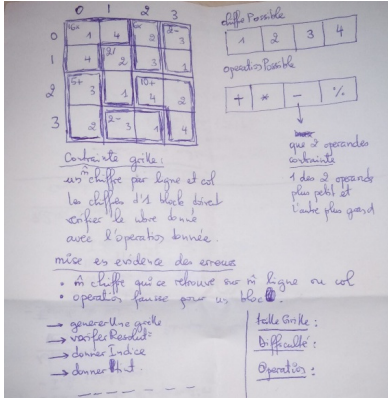 0 1 2 3
0 16* 1 4 6* 2 2- 3
1 4 2/ 2 3 1
2 5+ 3 1 10+ 4 2
3 2 2- 3 1 4
chiffre Possible
1 2 3 4
operation Possible
+ * - %
que 2 operandes
contrainte
1 des 2 operande
plus petit et
l'autre plus grand
Contrainte grille :
un m̂ chiffre par ligne et col
les chiffres d'1 block doivent
verifier le nbre donné
avec l'operation donnée.
mise en evidence des erreurs
• m̂ chiffre qui se retrouve sur m̂ ligne ou col
• operation fausse pour un bloc.
→ generer Une grille
→ verifer Resolut°
→ donner Indice
→ donner
taille Grille :
Difficulté :
Operation :